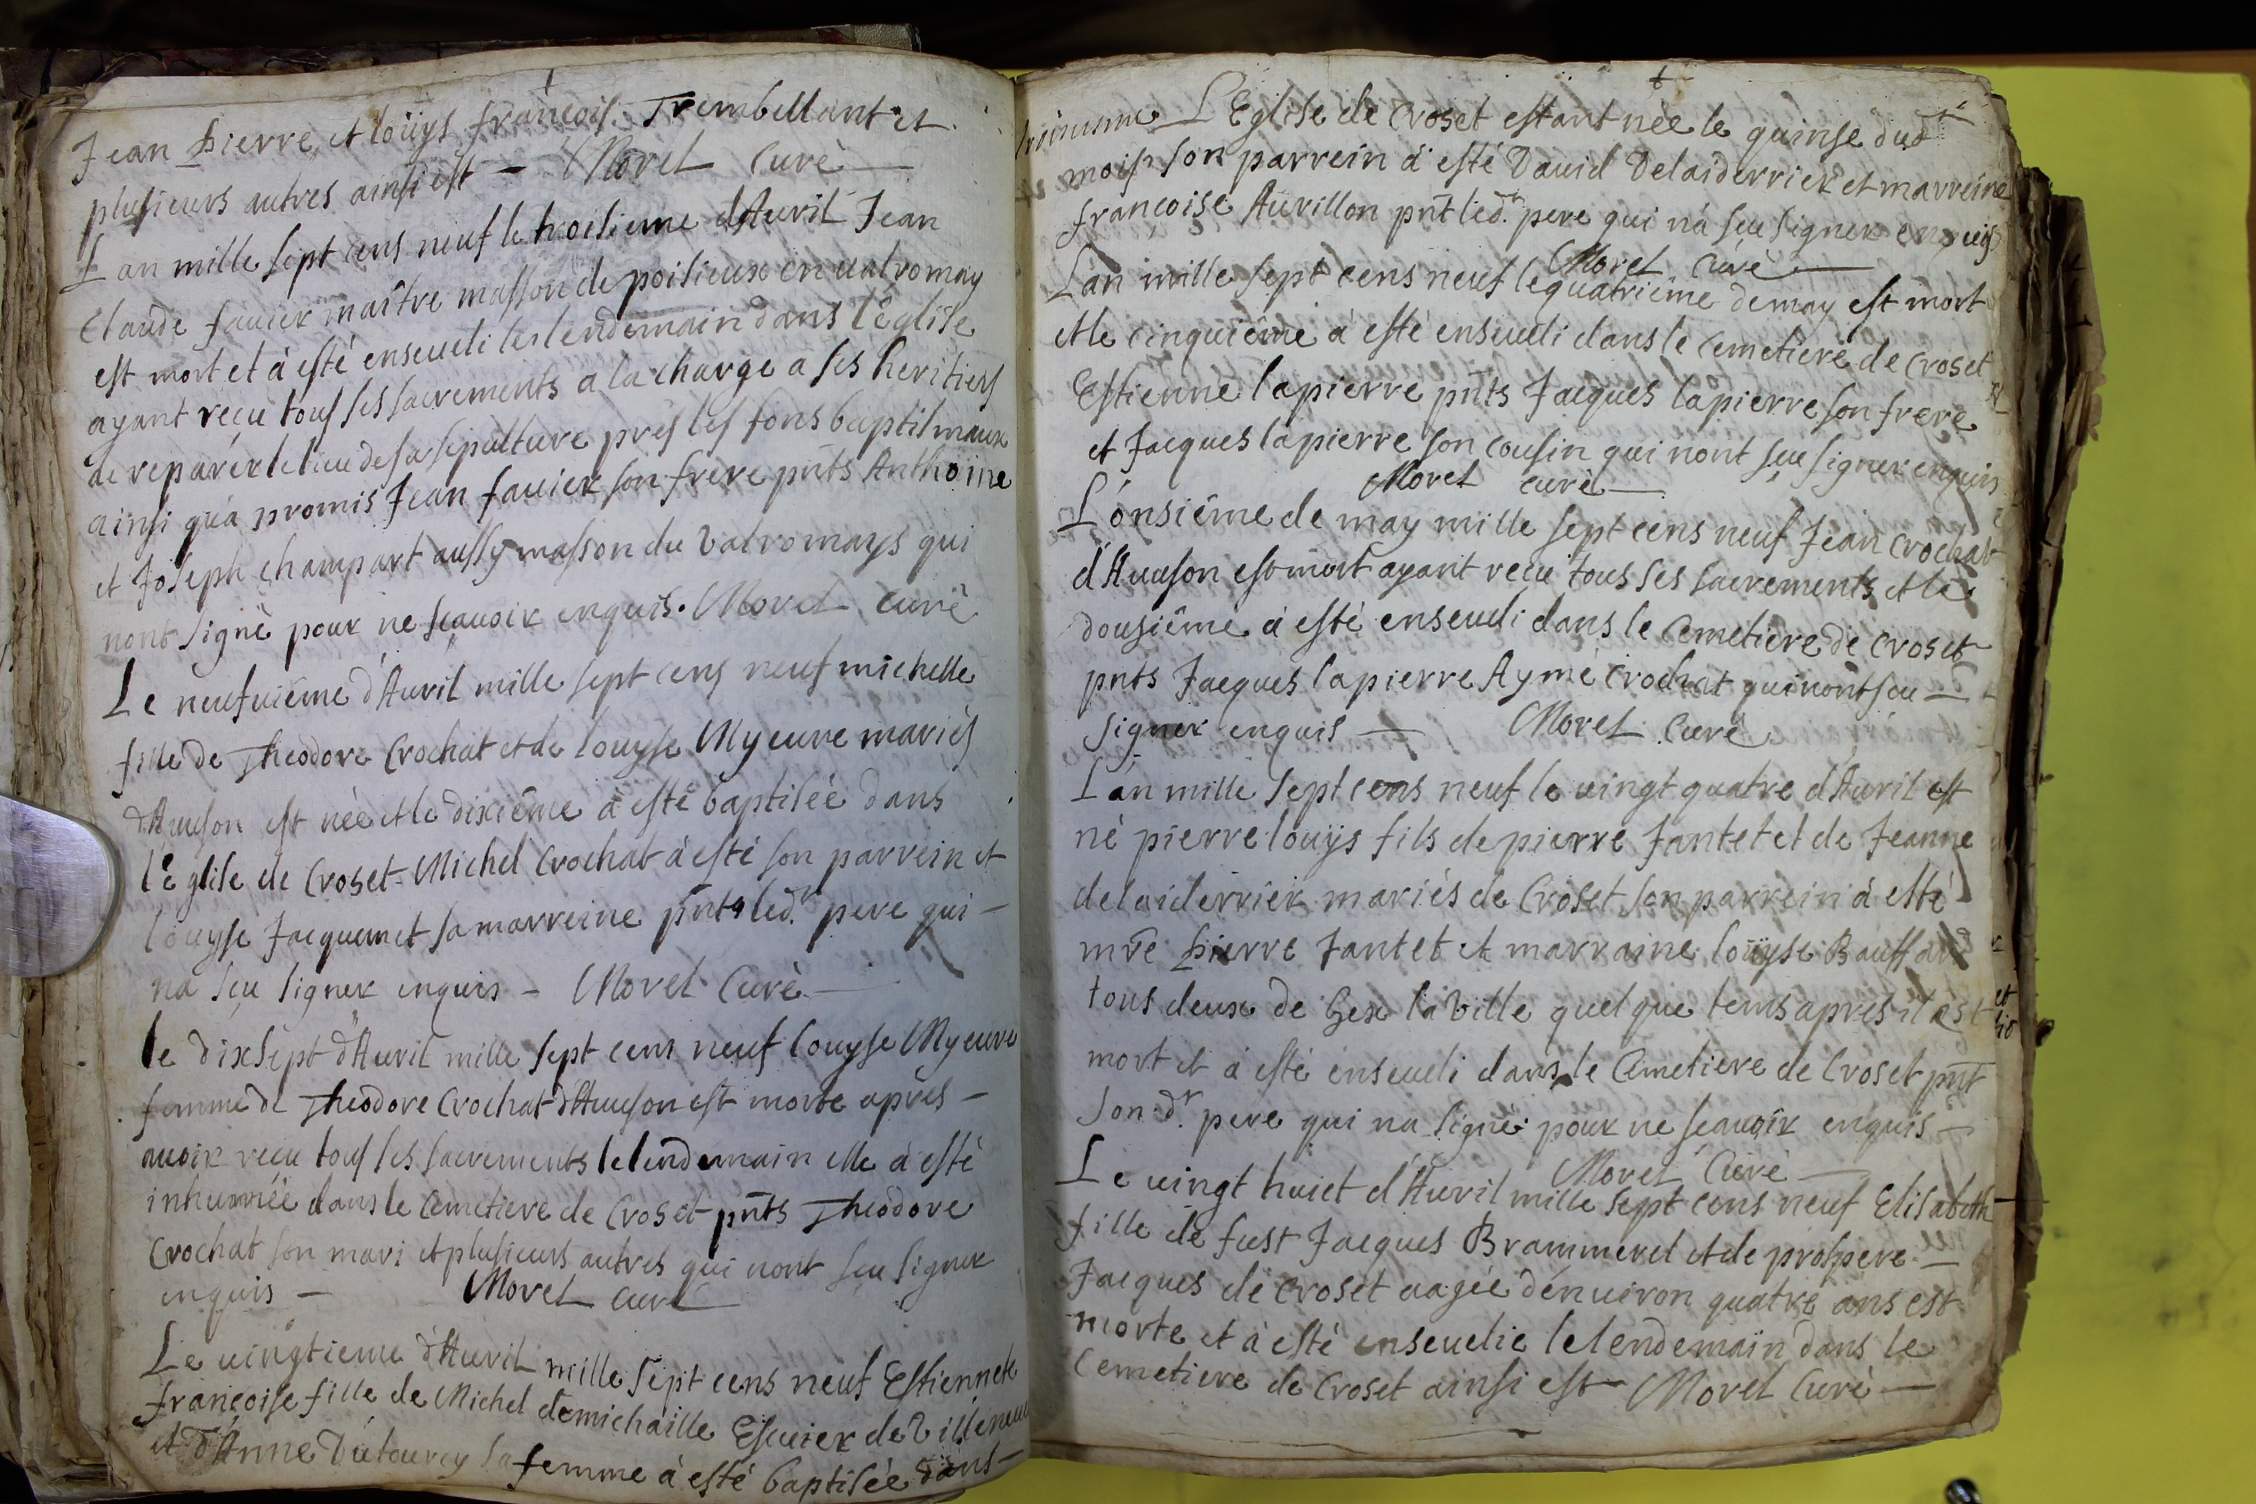 Jean pierre et loüys françois Trembellant et
plusieurs autres ainsi est – Morel Curè
L an mille sept cens neuf le troisieme d'Auril Jean
Claude fauier maître masson de poisieux en ualromay
est mort et à esté enseueli le lendemain dans l'église
ayant reçu tous ses sacrements a la charge a ses heritiers
de reparér le lieu de sa sepulture prés les fons baptismaux
ainsi qu'a promis Jean fauier son frere pnts Anthoine
et Joseph champart aussy masson du Valromays qui
nont signè pour ne sçauoir enquis. Morel curè
Le neufuième d'Auril mille sept cens neuf michelle
fille de Theodore Crochat et de louyse Myeure mariés
d'Auuson est née et le dixiême à esté baptisée dans
l'église de Croset Michel Crochat à esté son parrein et
louyse Jacquemet sa marreine pnts led.r pere qui –
na sçu signer enquis – Morel Curè
le dixsept d'Auril mille sept cens neuf louyse Myeure
femme de Theodore Crochat d'Auuson est morte aprés –
auoir reçu tous ses sacrements le lendemain elle à esté
inhumée dans le Cemetiere de Croset pnts Theodore
Crochat son mari et plusieurs autres qui nont sçu signer
enquis – Morel curè
Le uingtieme d'Auril mille sept cens neuf Estiennete
françoise fille de Michel demichaille Escuier de Villeneuue
et d'Anne Dutourey sa femme à esté baptisée dans –
L'Eglise de Croset estant née le quinse dud
mois son parrein à esté Dauid Delaiderrier et marreine
françoise Aurillon pnt led.r pere qui nà sçu signer enquis
Morel Curè
L'an mille sept cens neuf le quatriême de may est mort
et le cinquiême à esté enseueli dans le cemetiere de Croset
Estienne lapierre pnts Jacques lapierre son frere
et Jacques lapierre son cousin qui nont sçu signer enquis
Morel curè
L'onsiême de may mille sept cens neuf Jean Crochat
d'Auuson est mort ayant reçu tous ses sacrements et le
dousiême à esté enseueli dans le Cemetiere de Croset
pnts Jacques lapierre Aymé Crochat qui nont sçu –
signer enquis – Morel Curè
L'an mille sept cens neuf le uingt quatre d'Auril est
né pierre loüys fils de pierre Jantet et de Jeanne
delaiderrier mariés de Croset son parrein à esté
mre pierre Jantet et marraine loüyse Bauffard
tous deux de Gex la Ville quelque tems apres il est
mort et à esté enseueli dans le Cemetiere de Croset pnt
son d.r pere qui na signé pour ne sçauoir enquis –
Morel Curè
Le uingt huict d'Auril mille sept cens neuf Elisabeth
fille de fust Jacques Brammerel et de prospere –
Jacques de Croset aagée d'enuiron quatre ans est
morte et à esté enseuelie le lendemain dans le
Cemetiere de Croset ainsi est Morel Curè –